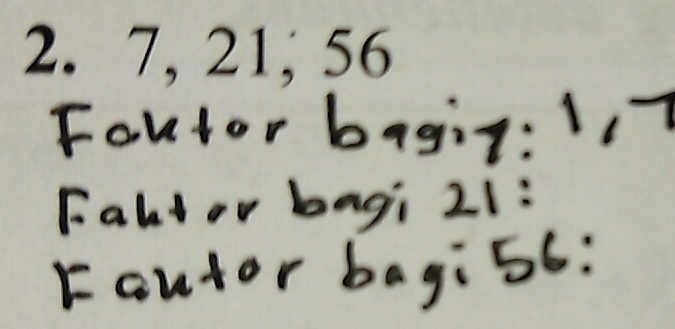 2. 7, 21, 56
Faktor bagi 7: 1, 7
Faktor bagi 21:
Faktor bagi 56: